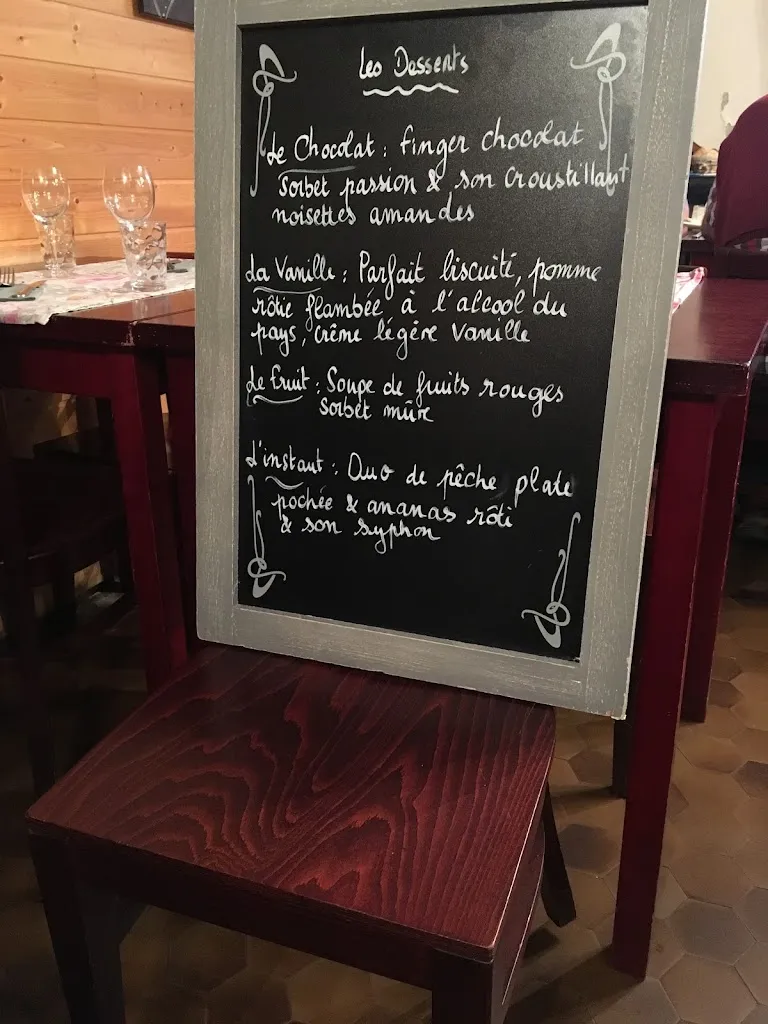 Les Desserts
Le Chocolat : finger chocolat
Sorbet passion & son croustillant
noisettes amandes
La Vanille : Parfait biscuité, pomme
rôtie flambée à l'alcool du
pays, crème légère vanille
Le fruit : Soupe de fruits rouges
Sorbet mûre
L'instant : Duo de pêche plate
pochée & ananas rôti
& son syphon